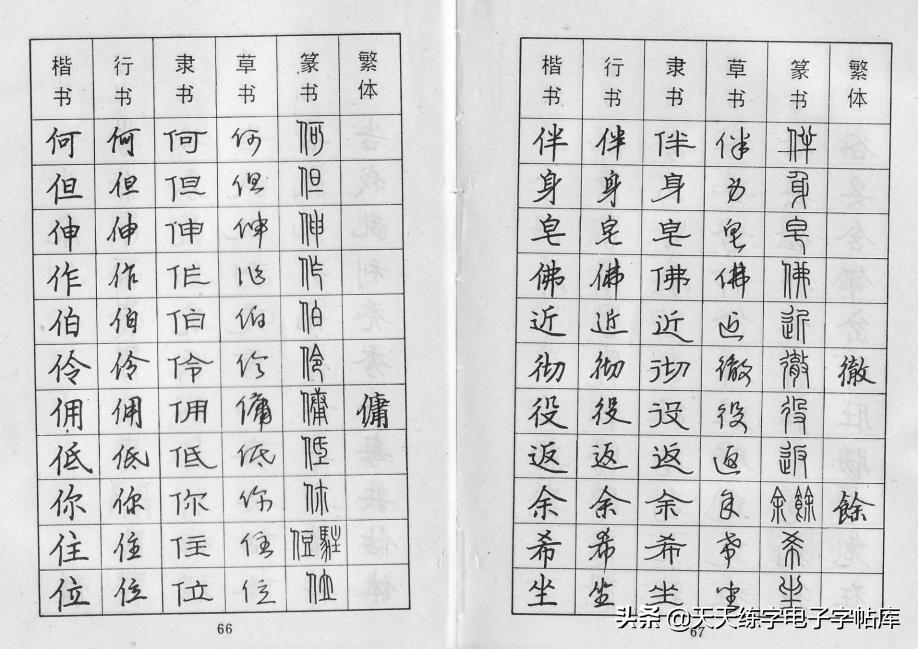 楷书 行书 隶书 草书 篆书 繁体
何 何 何 何 何
但 但 但 但 但
伸 伸 伸 伸 伸
作 作 作 作 作
伯 伯 伯 伯 伯
伶 伶 伶 伶 伶
佣 佣 佣 傭 傭 傭
低 低 低 低 低
你 你 你 你 你
住 住 住 住 住 駐
位 位 位 位 位
66
楷书 行书 隶书 草书 篆书 繁体
伴 伴 伴 伴 伴
身 身 身 身 身
皂 皂 皂 皂 皂
佛 佛 佛 佛 佛
近 近 近 近 近
彻 彻 彻 徹 徹 徹
役 役 役 役 役
返 返 返 返 返
余 余 余 余 余 餘 餘
希 希 希 希 希
坐 坐 坐 坐 坐
67
头条 @天天练字电子字帖库